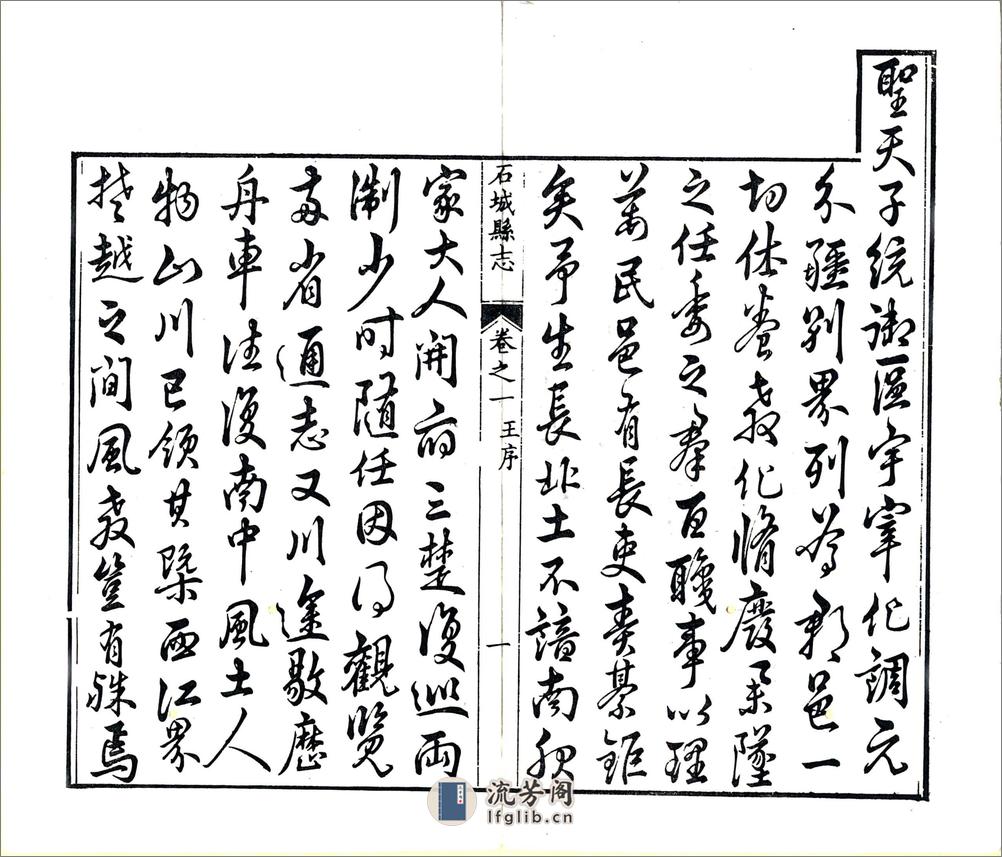 聖天子統御區宇宰化調元
分疆别界列為郡邑一
切休養教化脩廢舉墜
之任委之羣百職事以理
萬民邑有長吏責綦鉅
矣予生長北土不諳南服
石城縣志 卷之一 王序 一
家大人開府三楚復巡兩
淛少时随任因得觀覽
两省通志又川途敭歷
舟車往復南中風土人
物山川已领其槩西江界
楚越之间風教豈有殊焉
流芳阁
lfglib.cn